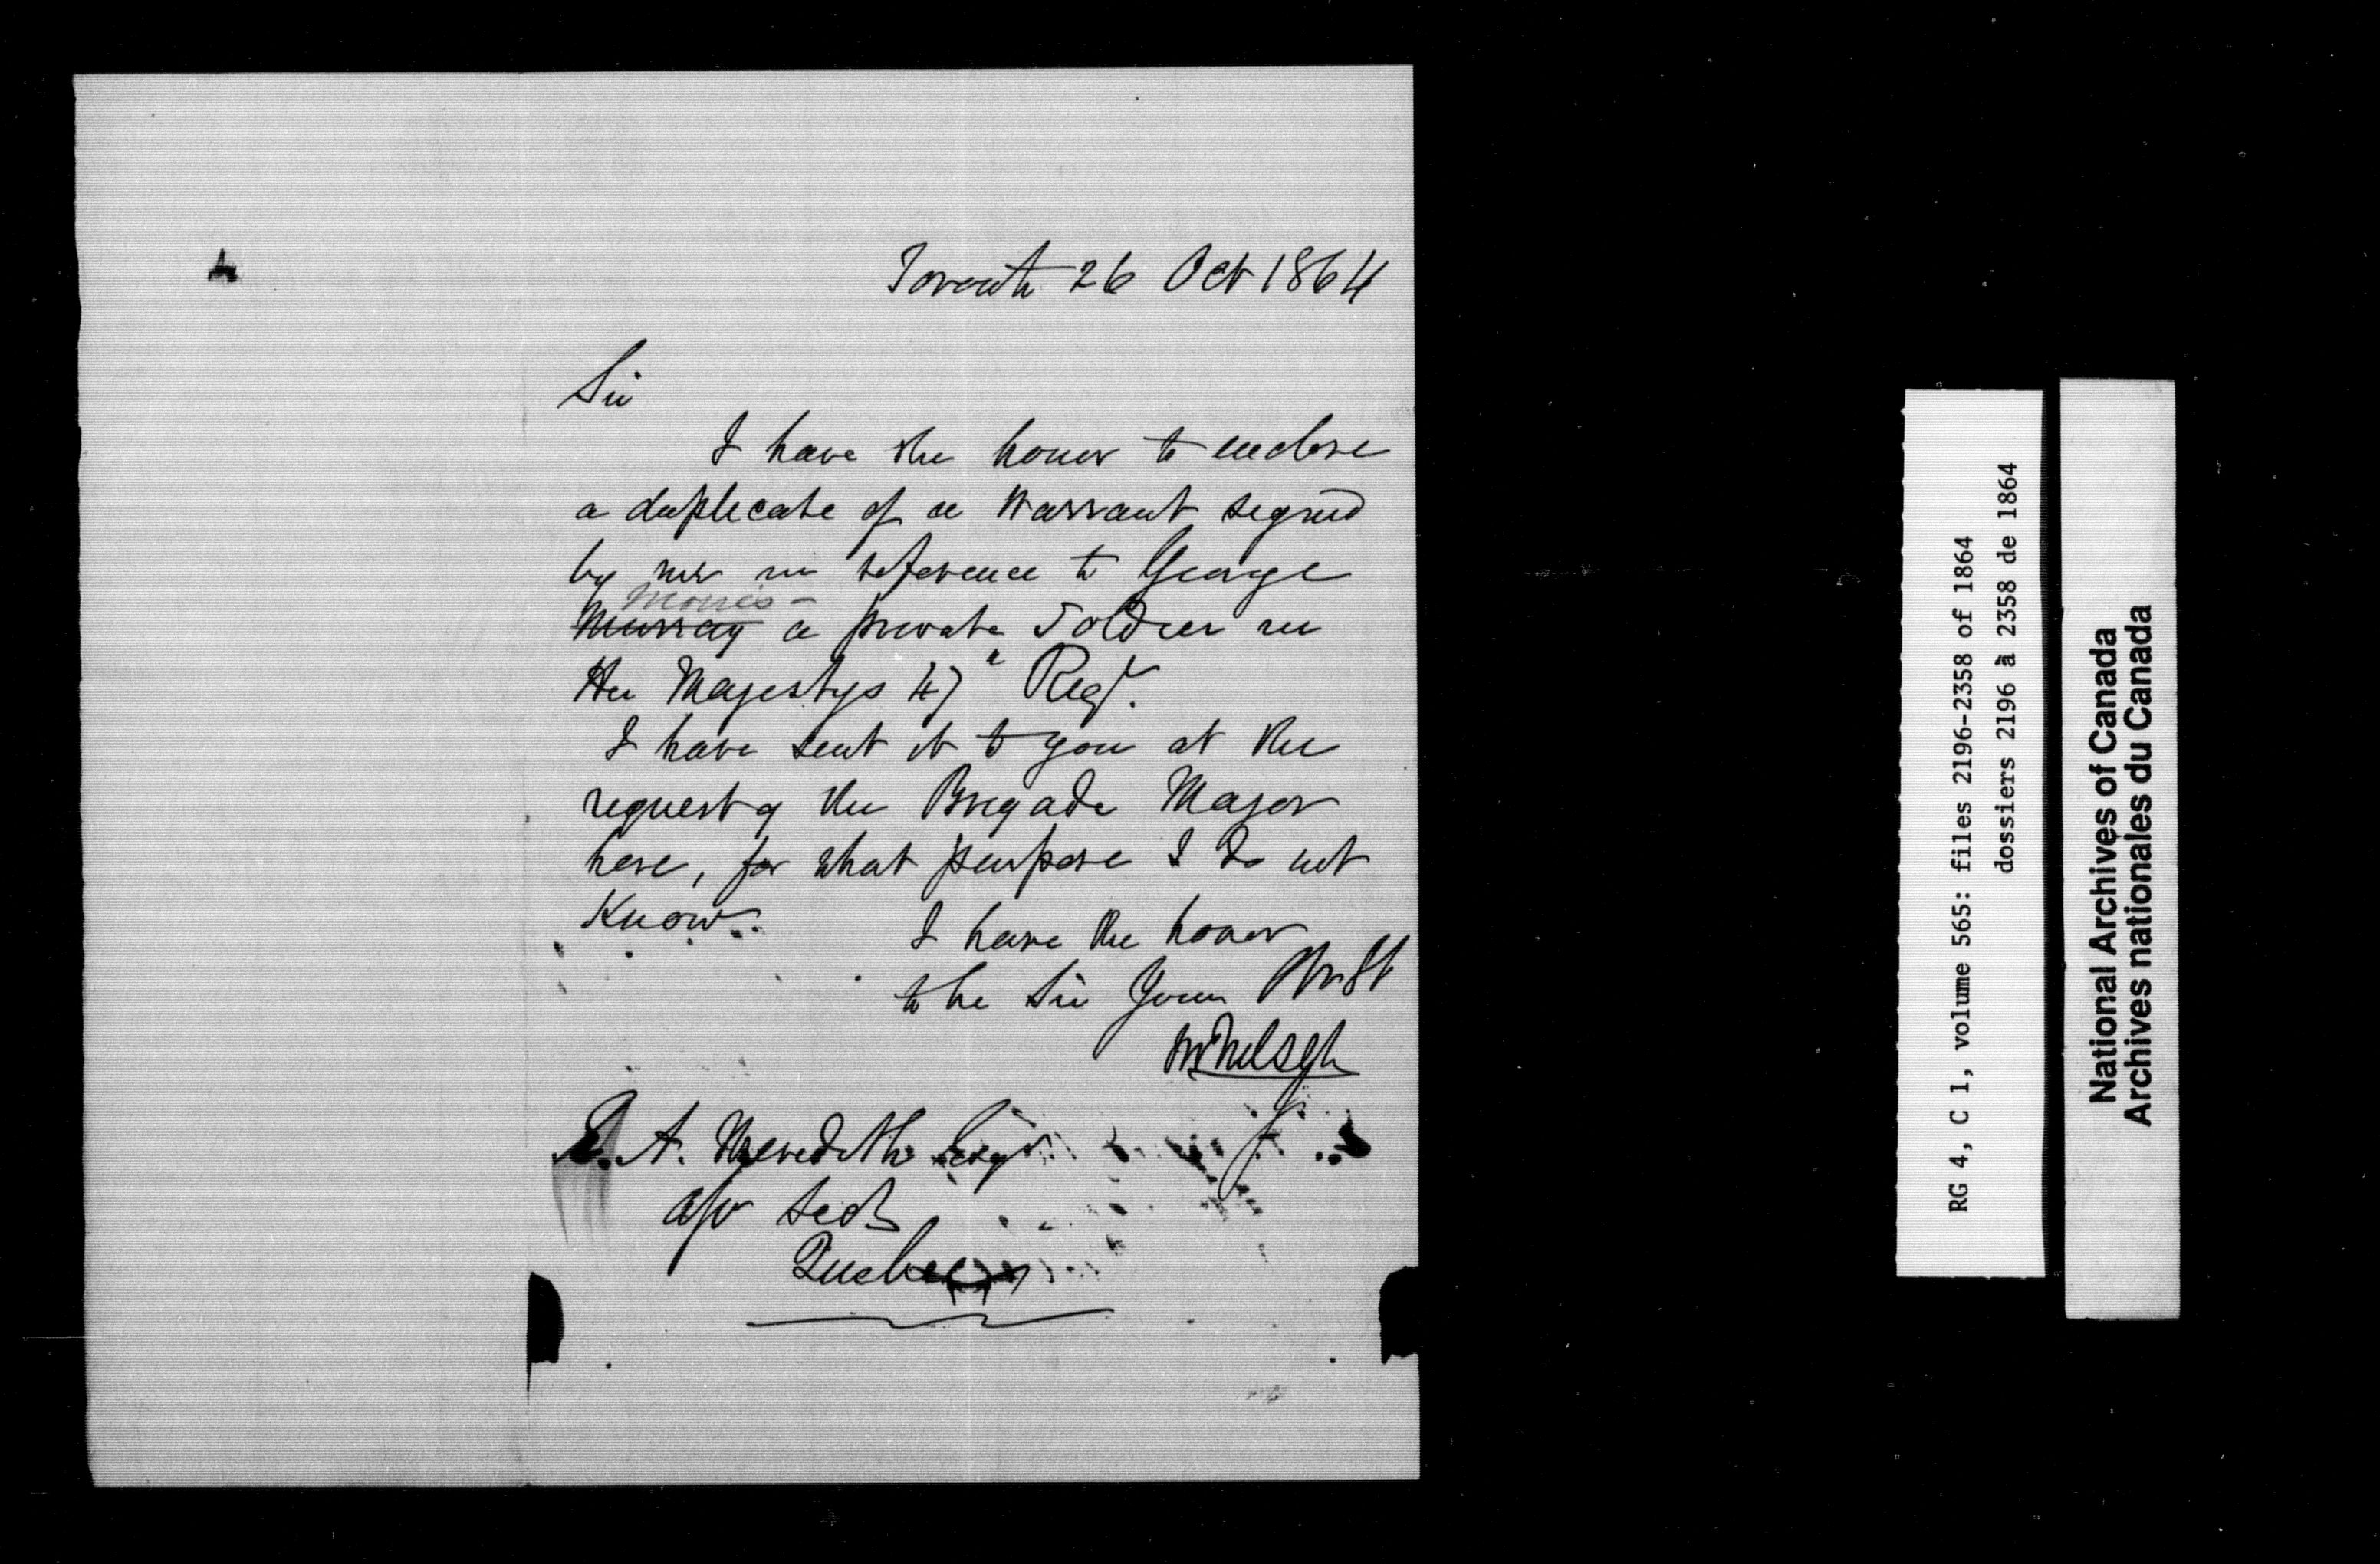 Toronto 26 Oct 1864
Sir
I have the honor to enclose
a duplicate of a Warrant signed
by me in reference to George
Morris -
Murray a private Soldier in
Her Majestys 47" Regt.
I have sent it to you at the
request of the Brigade Major
here, for what purpose I do not
Know.
I have the honor
to be Sir Your
E. A. Meredith Esqr
Secy
Quebec
RG 4, C 1, volume 565: files 2196-2358 of 1864
dossiers 2196 à 2358 de 1864
National Archives of Canada
Archives nationales du Canada